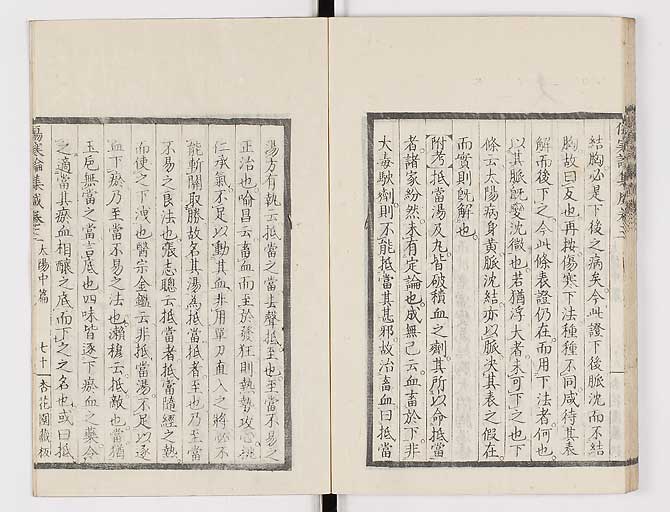 結胸必是下後之病矣。今此證下後脈沈而不結
胸故曰反也再按傷寒下法種種不同咸待其表
解而後下之今此條表證仍在而用下法者何也
以其脈既變沈微也若猶浮大者未可下之也下
條云太陽病身黃脈沈結亦以脈決其表之假在
而實則既解也。
附考抵當湯及丸皆破積血之劑其所以命抵當
者諸家紛然未有定論也成無己云血畜於下非
大毒駃劑則不能抵當其甚邪故治畜血曰抵當
湯方有執云抵當之當去聲抵至也至當不易之
正治也喻昌云畜血而至於發狂則熱勢攻心桃
仁承氣不足以動其血非用單刀直入之將必不
能斬關取勝故名其湯為抵當抵者至也乃至當
不易之良法也張志聰云抵當者抵當隨經之熱
而使之下洩也醫宗金鑑云非抵當湯不足以逐
血下瘀乃至當不易之法也瀨穆云抵敵也當猶
玉卮無當之當言底也四味皆逐下瘀血之藥令
之適當其瘀血相釀之底而下之之名也或曰抵
傷寒論集成卷三 太陽中篇 七十 杏花園藏板